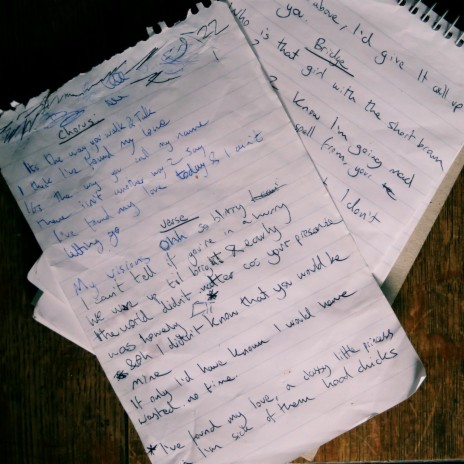 22
Chorus
It's the way you walk & Talk
I think I've found my love
It's the way you call my name
There isn't another way 2 say
I've found my love today & I ain't
letting go
Verse
My visions Ohh so blurry
I can't tell if you're in a hurry
We were up to bright & early
the world didn't matter cos your presence
was homely *
Ooh I didn't know that you would be
mine
If only I'd have known I would have
wasted no time
*I've found my love, a classy little princess
I'm sick of them hood chicks
above, I'd give It all up
you.
Bridge
Who is that girl with the short brown
Know I'm going mad
small from you
I don't